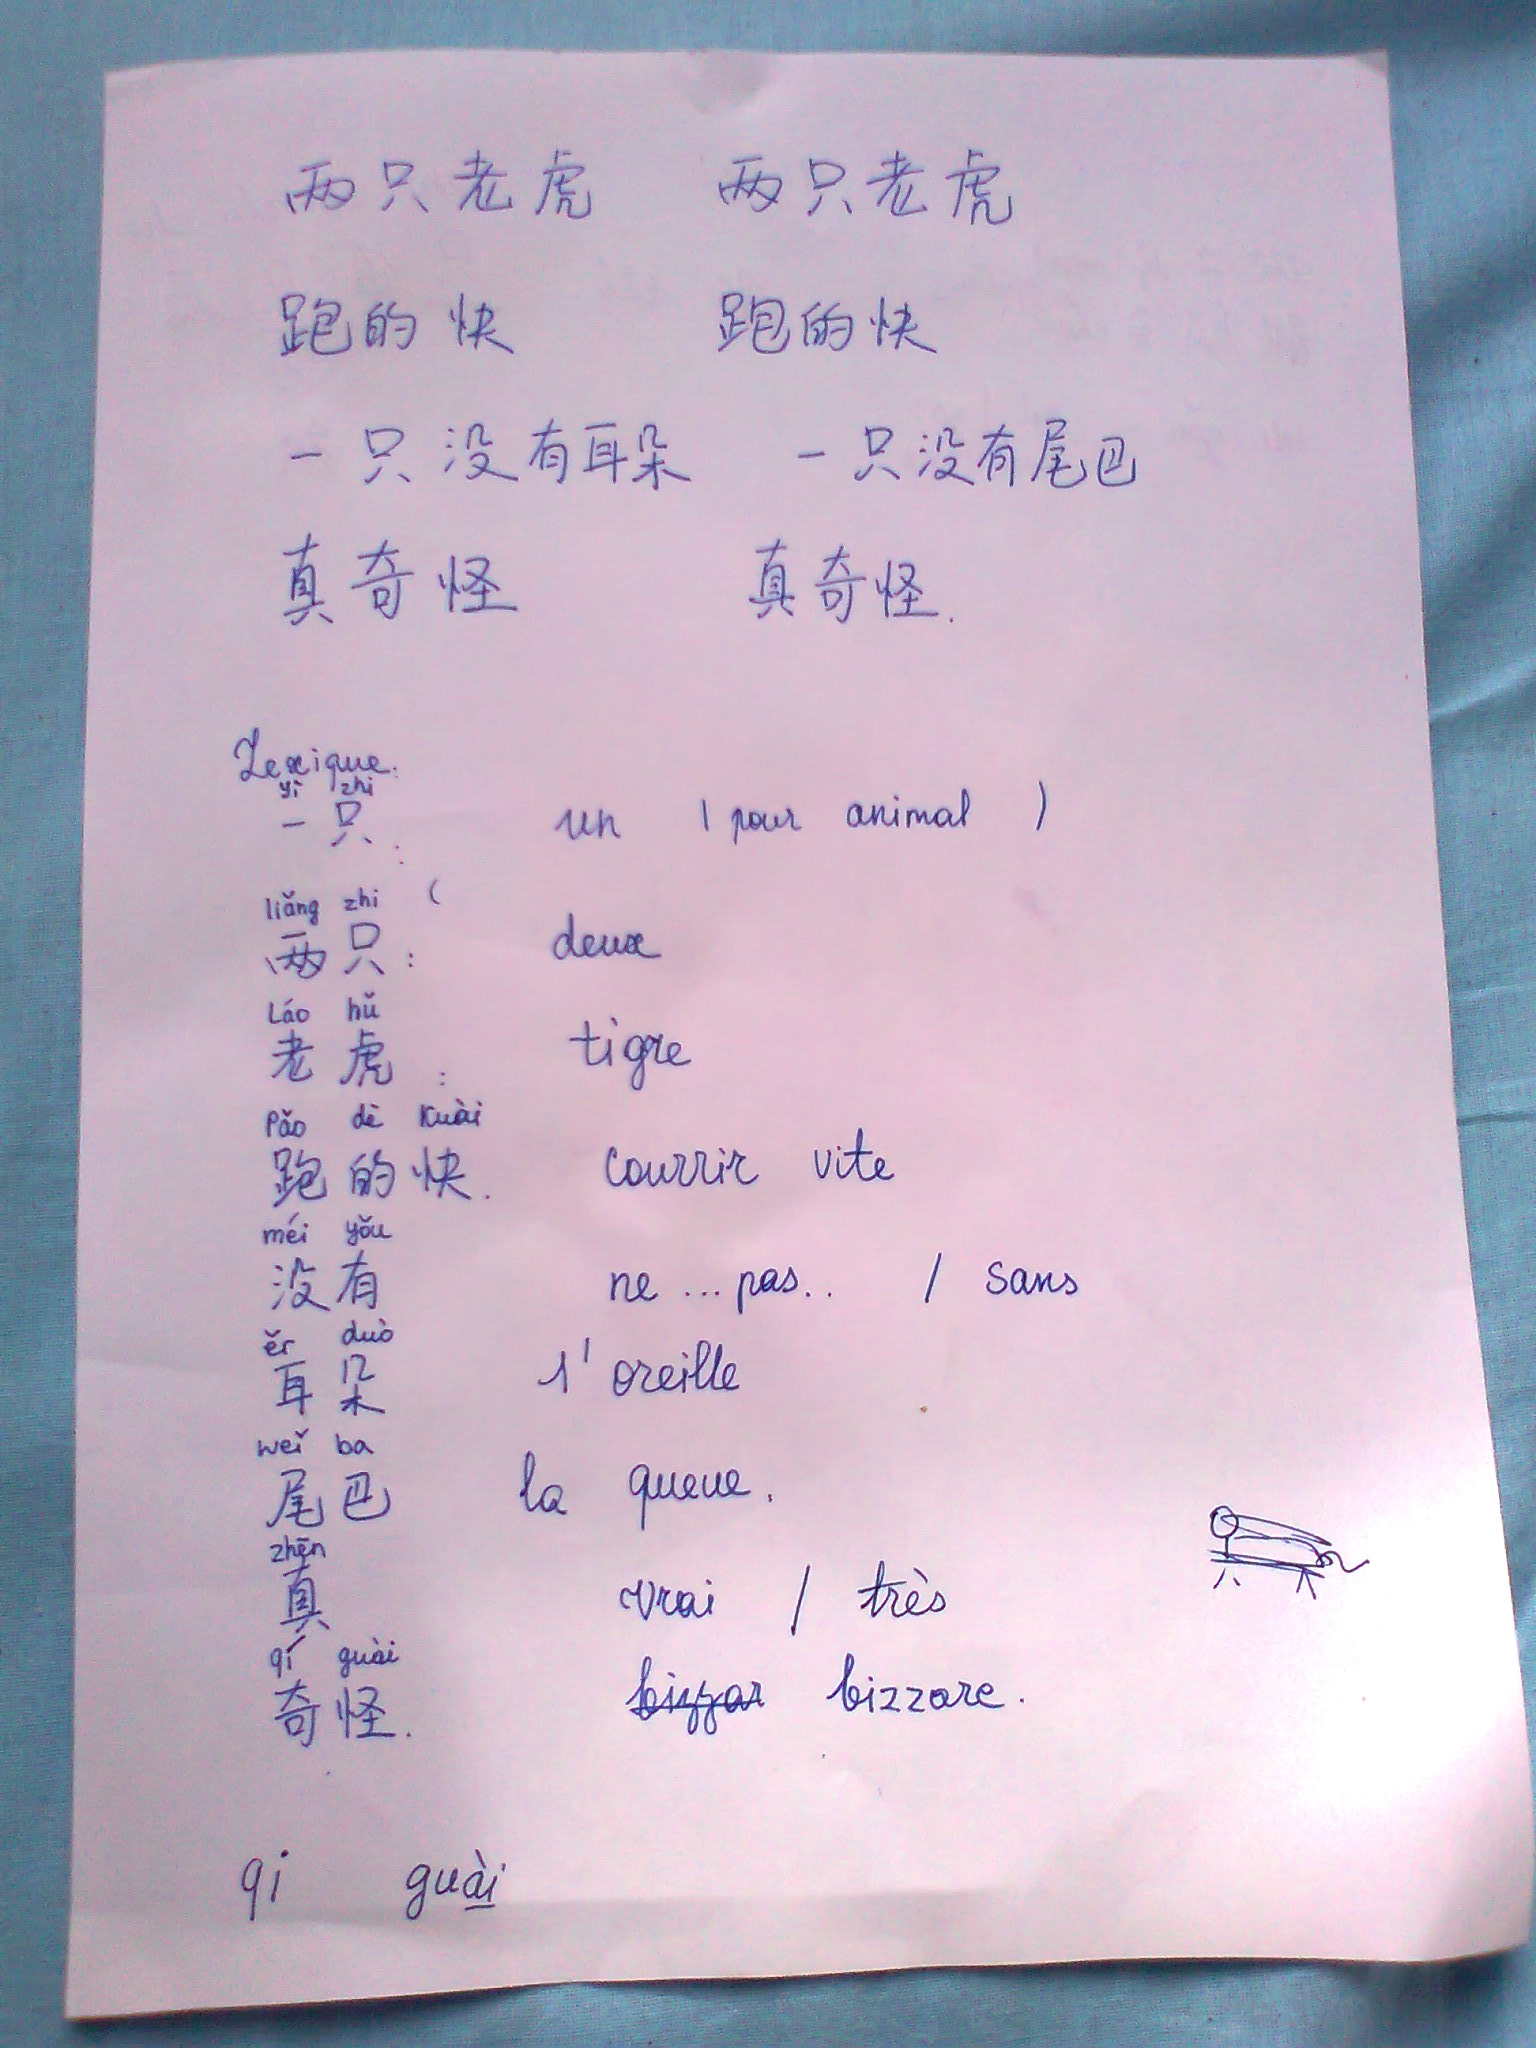 两只老虎 两只老虎
跑的快 跑的快
一只没有耳朵 一只没有尾巴
真奇怪 真奇怪.
Lexique:
yì zhi
一只: un ( pour animal )
liǎng zhi (
两只: deux
Láo hǔ
老虎: tigre
Pǎo dè Kuài
跑的快. courrir vite
méi yǒu
没有 ne ... pas.. / sans
ěr duò
耳朵 l'oreille
weǐ ba
尾巴 la queue.
zhēn
真 vrai / très
qí guài
奇怪. bizzar bizzare.
qi guài